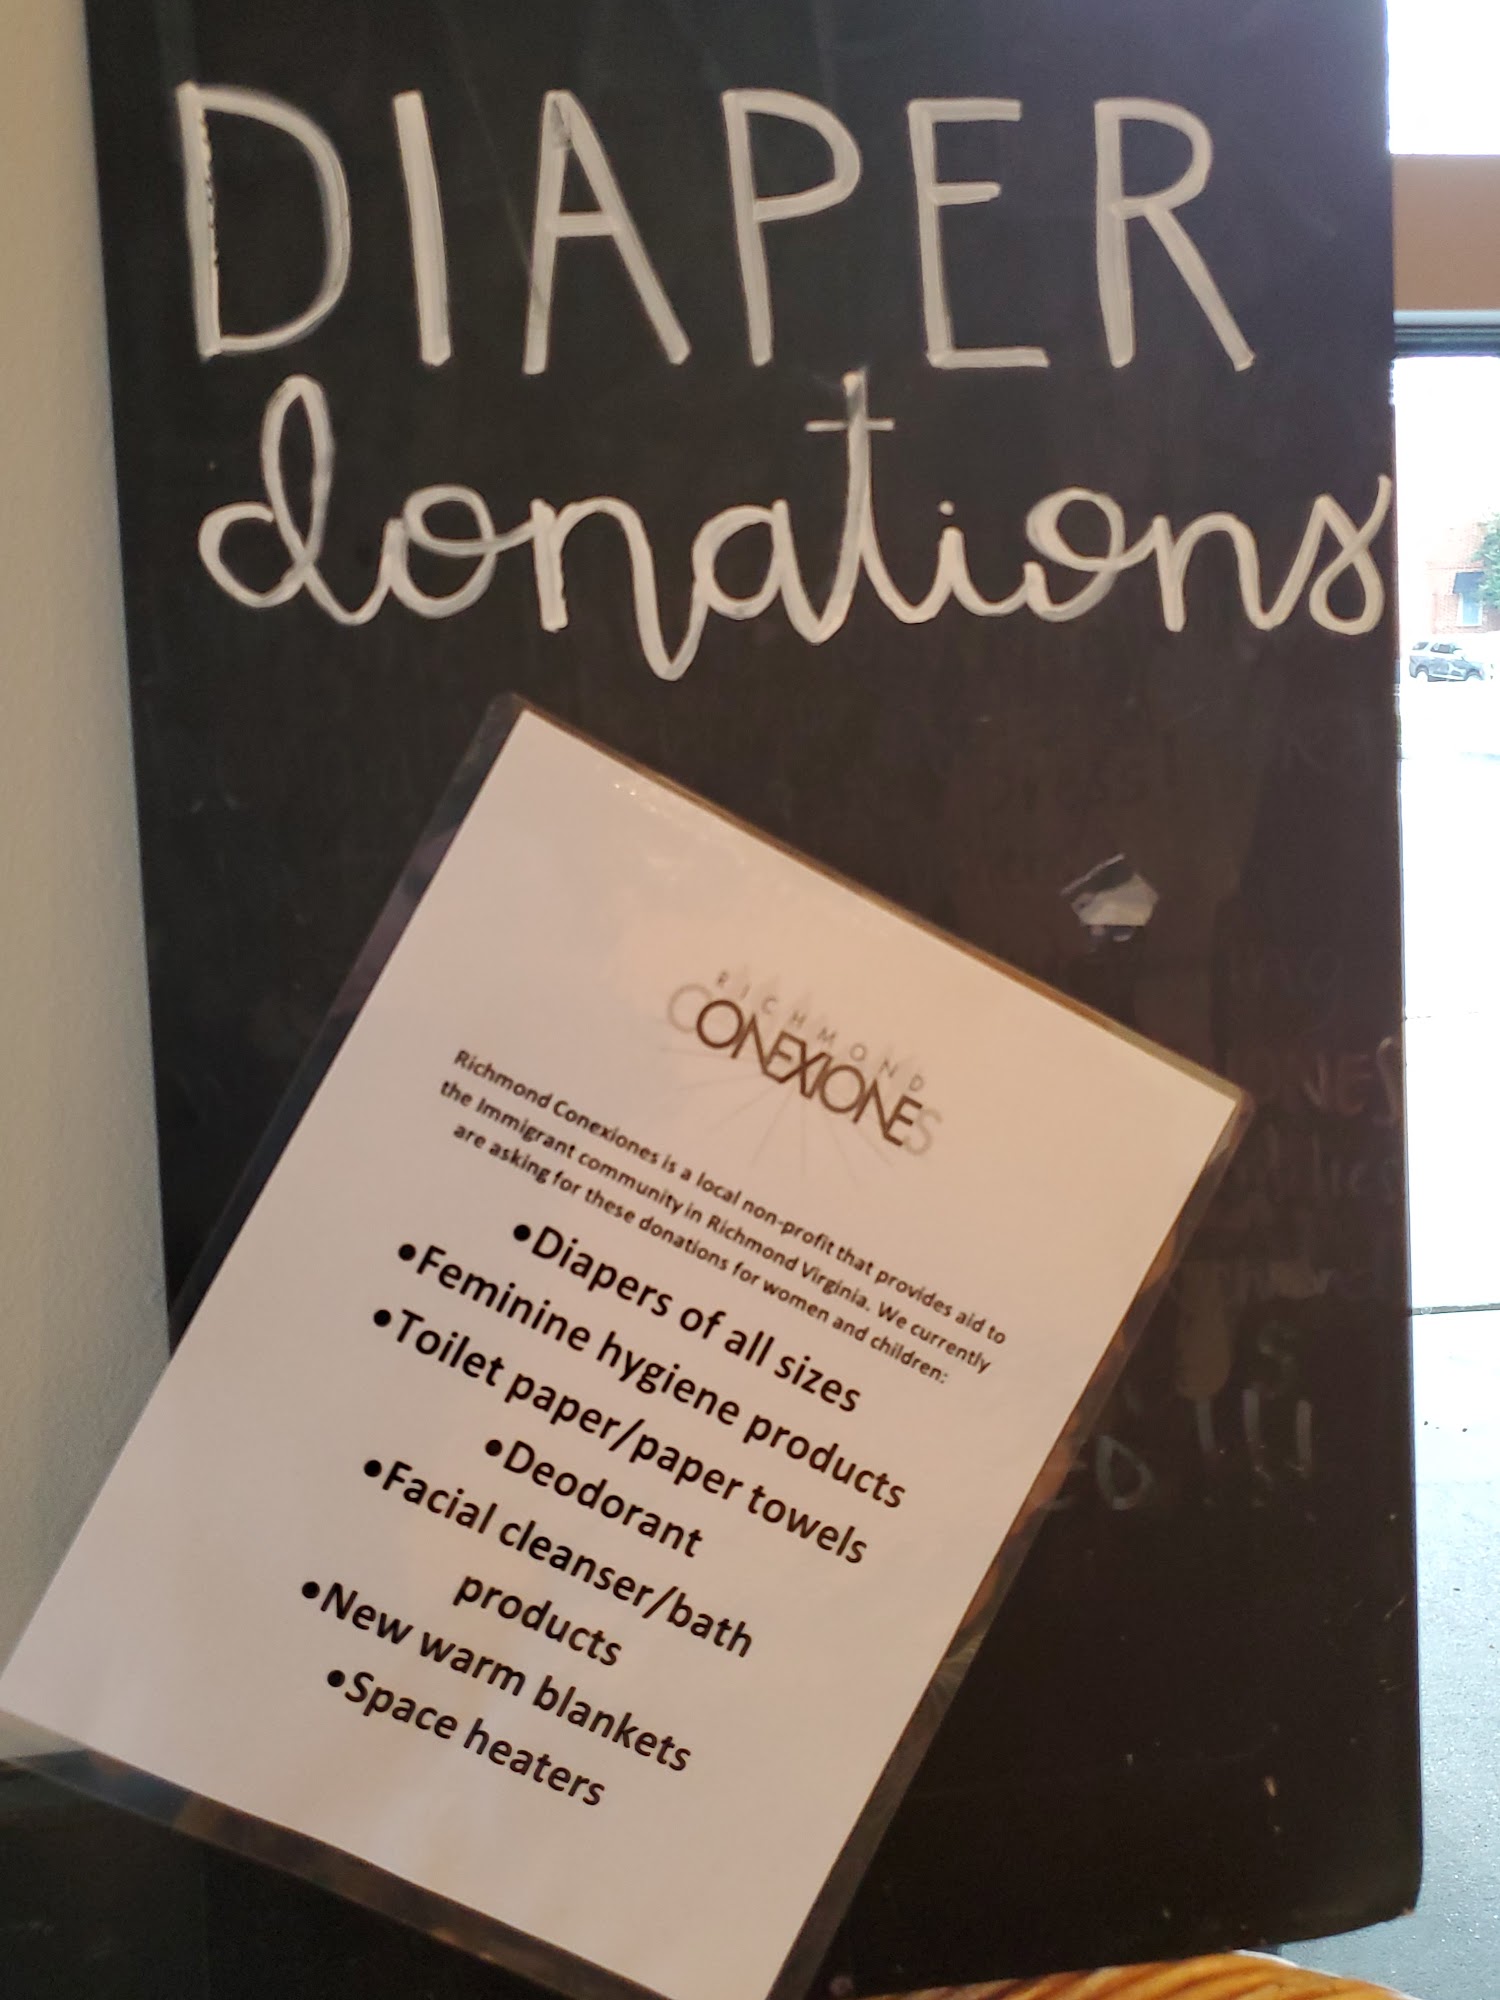 DIAPER
donations
RICHMOND
CONEXIONES
Richmond Conexiones is a local non-profit that provides aid to
the Immigrant community in Richmond Virginia. We currently
are asking for these donations for women and children:
•Diapers of all sizes
•Feminine hygiene products
•Toilet paper/paper towels
•Deodorant
•Facial cleanser/bath
products
•New warm blankets
•Space heaters